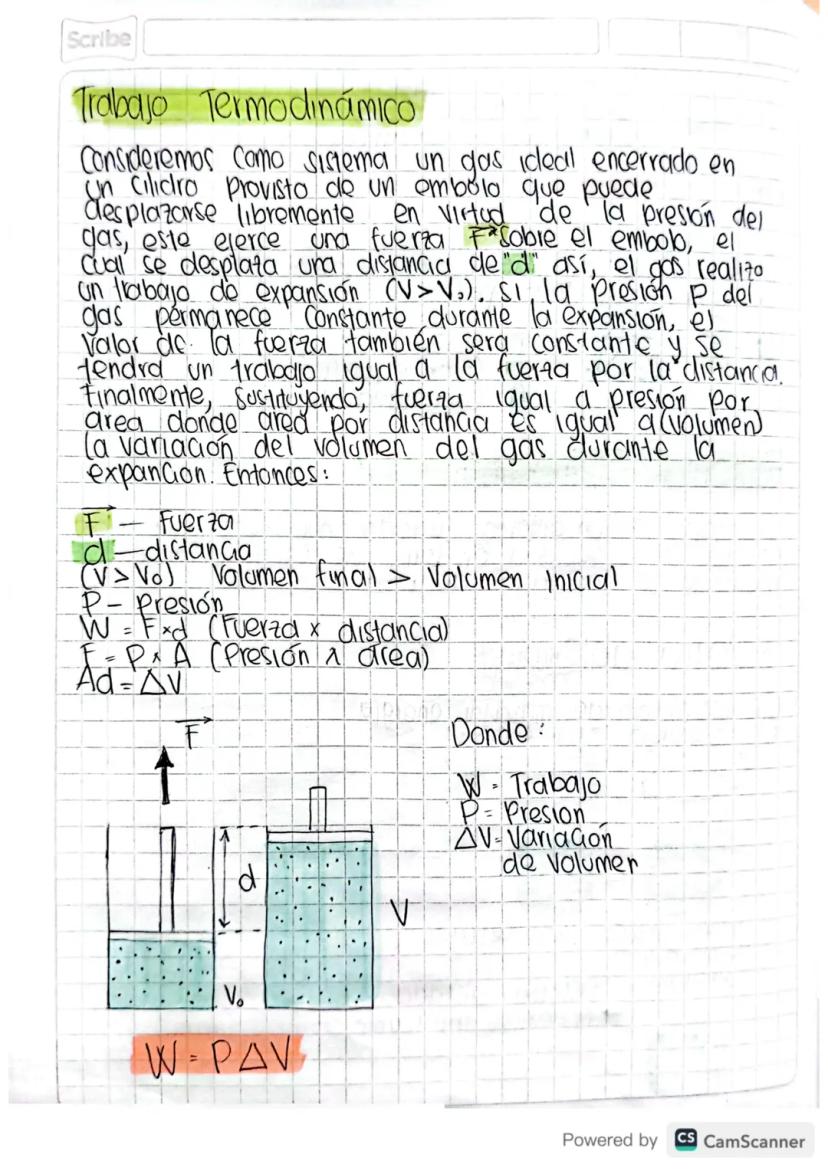 Scribe
Trabajo Termodinámico
Consideremos como sistema un gas ideal encerrado en
un cilidro provisto de un embolo que puede
desplazarse libremente en virtud de la presión del
gas, este ejerce una fuerza F sobre el embolo, el
cual se desplata una distancia de "d" así, el gas realizo
un trabajo de expansión (V>V₀). Si la presión P del
gas permanece constante durante la expansión, el
valor de la fuerza también sera constante y se
tendra un trabajo igual a la fuerza por la distancia.
Finalmente, sustituyendo, fuerza igual a presión por
area donde area por distancia es igual a (volumen)
la variación del volumen del gas durante la
expanción. Entonces:
F⃗ — Fuerza
d — distancia
(V > V₀) Volumen final > Volumen Inicial
P - Presión
W = F×d (Fuerza x distancia)
F = P x A (Presión x área)
Ad = ΔV
F⃗
Donde:
W = Trabajo
P = Presion
ΔV = Variación
de Volumen
d
V
V₀
W = PΔV
Powered by CS CamScanner